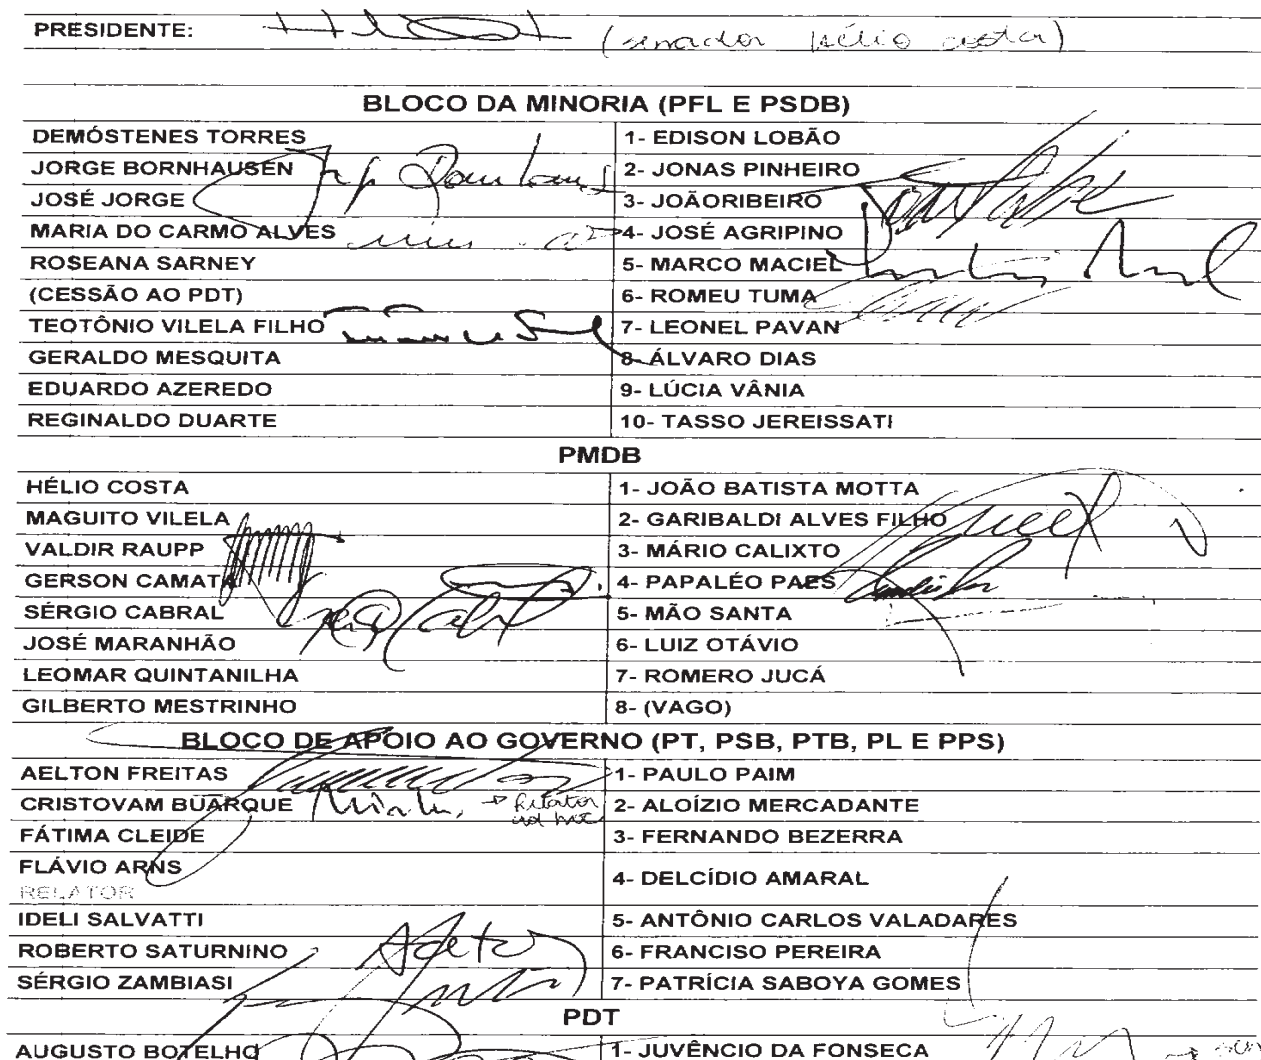 PRESIDENTE: (senador Hélio Costa)
BLOCO DA MINORIA (PFL E PSDB)
DEMÓSTENES TORRES 1- EDISON LOBÃO
JORGE BORNHAUSEN 2- JONAS PINHEIRO
JOSÉ JORGE 3- JOÃORIBEIRO
MARIA DO CARMO ALVES 4- JOSÉ AGRIPINO
ROSEANA SARNEY 5- MARCO MACIEL
(CESSÃO AO PDT) 6- ROMEU TUMA
TEOTÔNIO VILELA FILHO 7- LEONEL PAVAN
GERALDO MESQUITA 8- ÁLVARO DIAS
EDUARDO AZEREDO 9- LÚCIA VÂNIA
REGINALDO DUARTE 10- TASSO JEREISSATI
PMDB
HÉLIO COSTA 1- JOÃO BATISTA MOTTA
MAGUITO VILELA 2- GARIBALDI ALVES FILHO
VALDIR RAUPP 3- MÁRIO CALIXTO
GERSON CAMATA 4- PAPALÉO PAES
SÉRGIO CABRAL 5- MÃO SANTA
JOSÉ MARANHÃO 6- LUIZ OTÁVIO
LEOMAR QUINTANILHA 7- ROMERO JUCÁ
GILBERTO MESTRINHO 8- (VAGO)
BLOCO DE APOIO AO GOVERNO (PT, PSB, PTB, PL E PPS)
AELTON FREITAS 1- PAULO PAIM
CRISTOVAM BUARQUE → Relator ad hoc 2- ALOÍZIO MERCADANTE
FÁTIMA CLEIDE 3- FERNANDO BEZERRA
FLÁVIO ARNS 4- DELCÍDIO AMARAL
RELATOR
IDELI SALVATTI 5- ANTÔNIO CARLOS VALADARES
ROBERTO SATURNINO 6- FRANCISO PEREIRA
SÉRGIO ZAMBIASI 7- PATRÍCIA SABOYA GOMES
PDT
AUGUSTO BOTELHO 1- JUVÊNCIO DA FONSECA